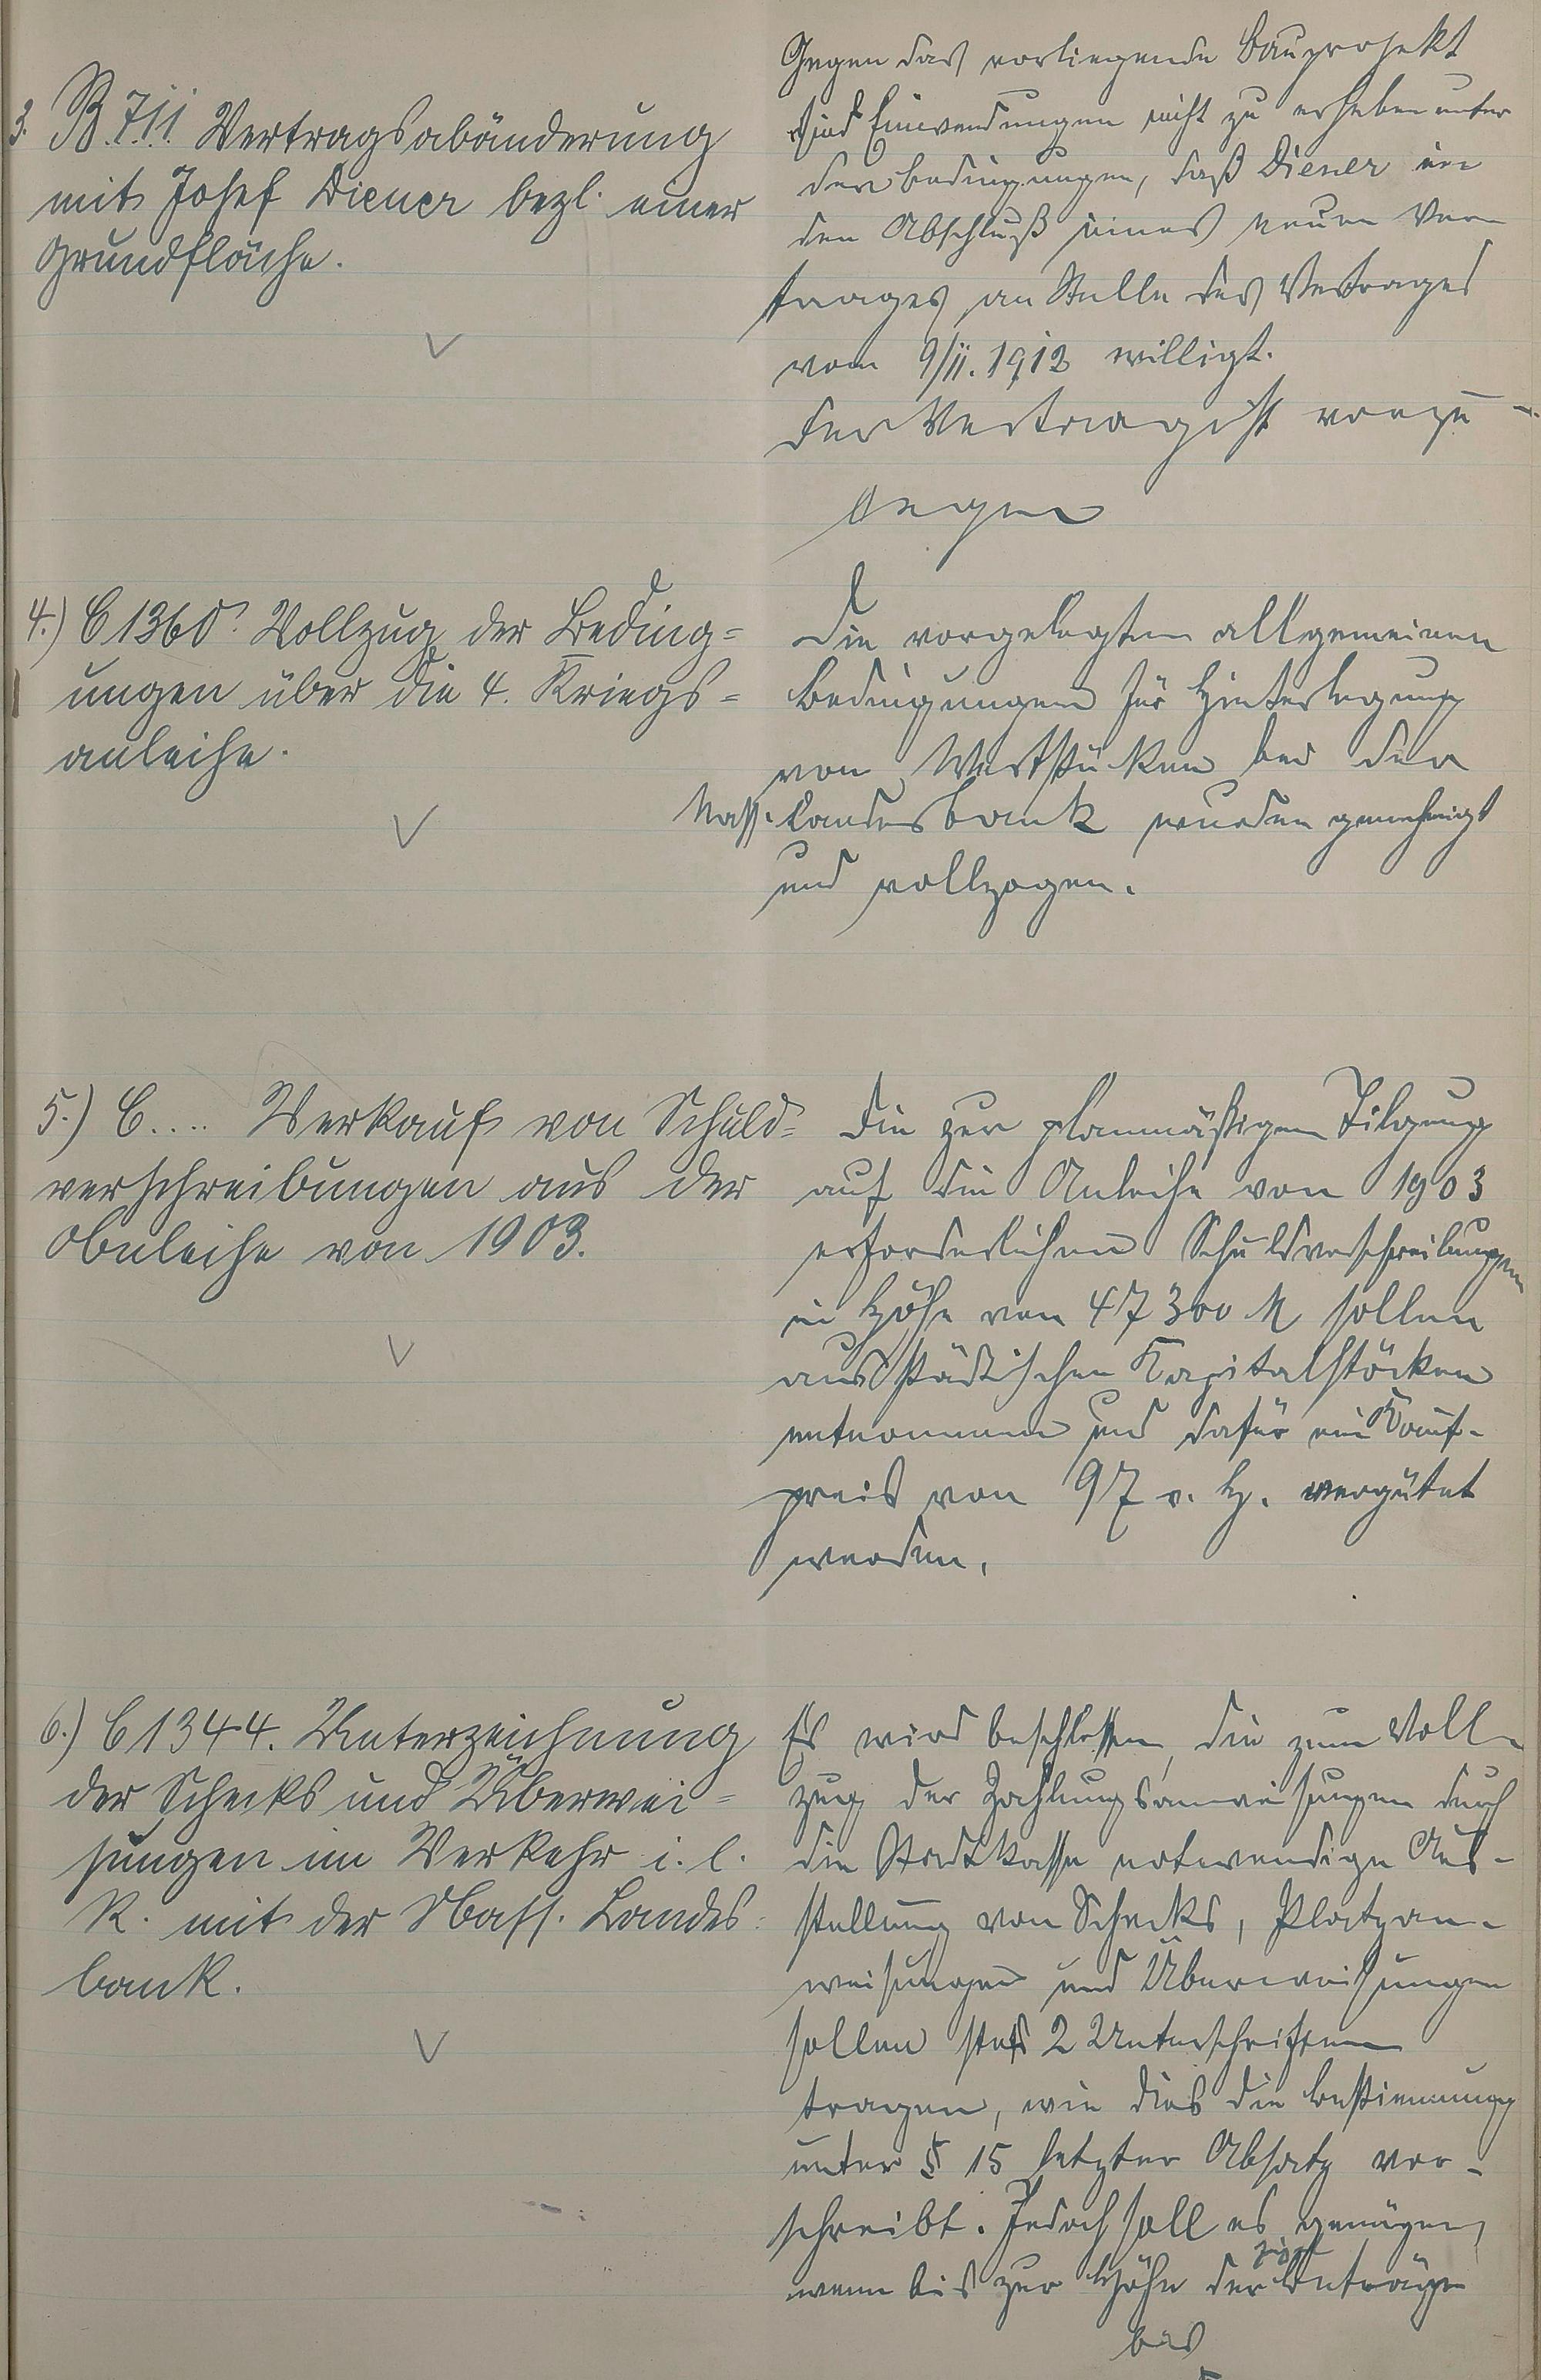 3. B.711. Vertragsabänderung
mit Josef Diener bezl. einer
Grundfläche.
Gegen das vorliegende Bauprojekt
sind Einwendungen nicht zu erheben unter
den Bedingungen, daß Diener in
den Abschluß eines neuen Ver-
trages an Stelle des Vertrages
vom 9/II. 1912 willigt.
Der Vertrag ist vorzu-
legen
4.) C 1360. Vollzug der Beding=
ungen über die 4. Kriegs=
anleihe.
Die vorgelegten allgemeinen
Bedingungen für Hinterlegung
von Wertstücken bei der
Nass. Landesbank wurden genehmigt
und vollzogen.
5.) C.... Verkauf von Schuld=
verschreibungen aus der
Anleihe von 1903.
Die zur planmäßigen Tilgung
auf die Anleihe von 1903
erforderlichen Schuldverschreibungen
in Höhe von 47300 M sollen
aus städtischen Kapitalstöcken
entnommen und dafür ein Kauf-
preis von 97 v. H. vergütet
werden.
6.) C 1344. Unterzeichnung
der Schecks und Überwei=
sungen im Verkehr i. l.
R. mit der Nass. Landes=
bank.
Es wird beschlossen, die zum Voll-
zug der Zahlungsanweisungen durch
die Stadtkasse notwendige Aus-
stellung von Schecks, Platzan-
weisungen und Überweisungen
sollen stets 2 Unterschriften
tragen, wie dies die Bestimmung
unter § 15 letzter Absatz vor-
schreibt. Jedoch soll es genügen,
wenn bis zur Höhe der Beträge
bis